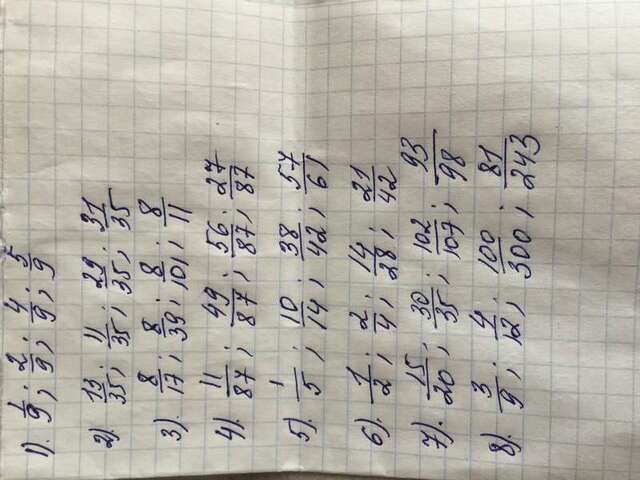 1). 1/9; 2/9; 4/9; 5/9
2). 13/35; 11/35; 29/35; 31/35
3). 8/17; 8/39; 8/101; 8/11
4). 11/87; 49/87; 56/87; 27/87
5). 1/5; 10/14; 38/42; 57/61
6). 1/2; 2/4; 14/28; 21/42
7). 15/20; 30/35; 102/107; 93/98
8). 3/9; 4/12; 100/300; 81/243